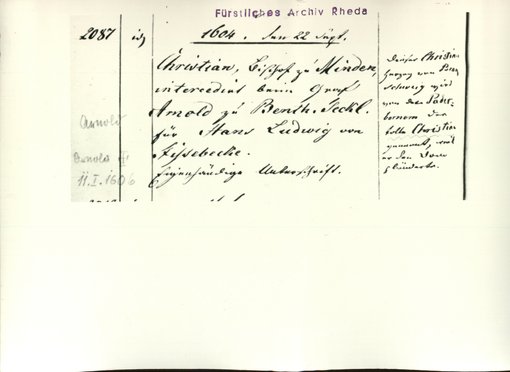 Fürstliches Archiv Rheda
2087
1604. den 22 Sept.
Christian, Bischof zu Minden,
intercedirt beim Graf
Arnold zu Benth. Teckl.
für Hans Ludwig von
Eigenhändige Unterschrift.
Arnold
Arnold
11.I.1606
Dieser Christian
Herzog von
wird
von den Pader-
bornern der
tolle Christian
genannt, weil
er den Dom
plünderte.